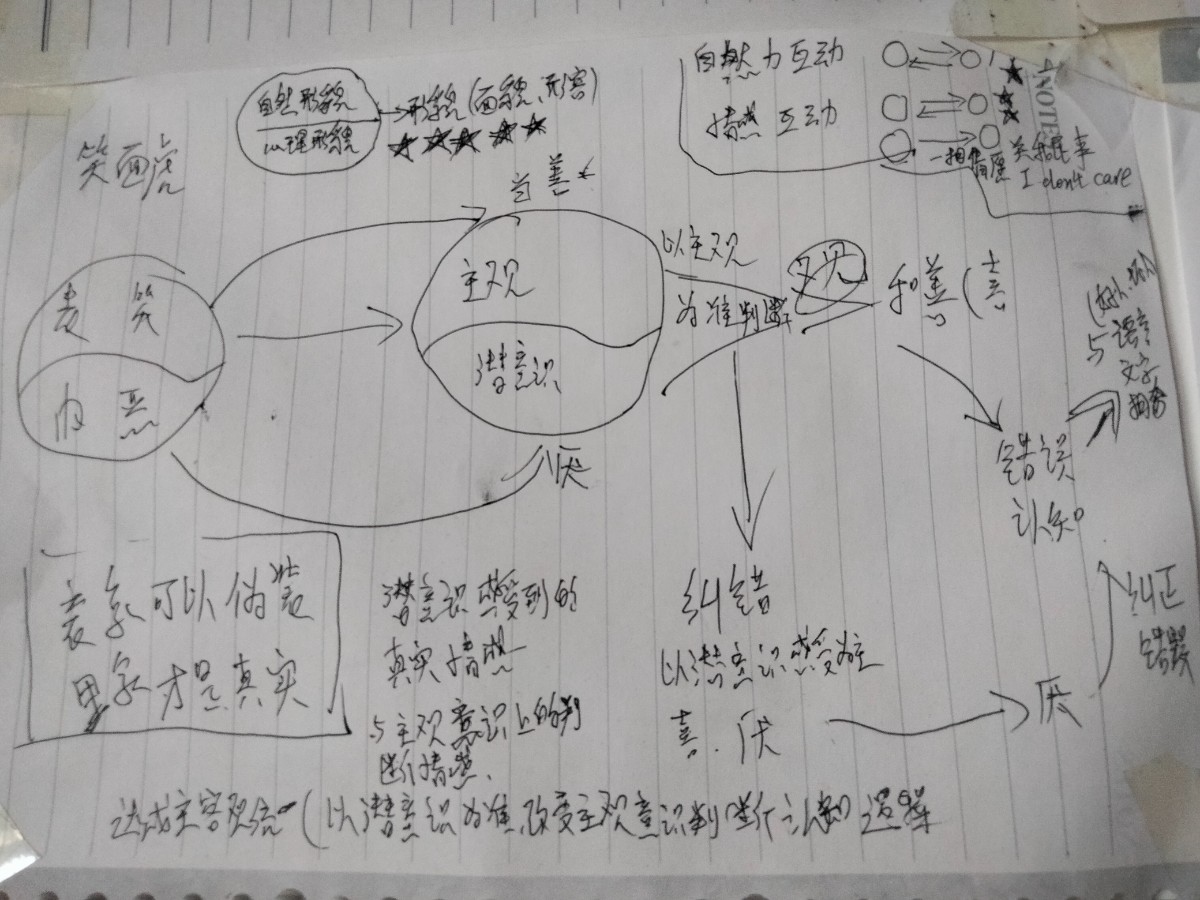 自然力互动
情感互动
一相情愿 关我屁事
I don't care
NOTE
自然形貌
心理形貌
形貌(面貌、形容)
笑面虎
善
表 笑
内 恶
主观
潜意识
厌
以主观
为准判断
和善(喜
错误
认知
与语言
文字
纠正
错误
表象可以伪装
里象才是真实
潜意识感受到的
真实情感
与主观意识上的判
断情感、
纠错
以潜意识感受准
喜、厌
厌
达成主客观统一(以潜意识为准,改变主观意识判断行认知选择